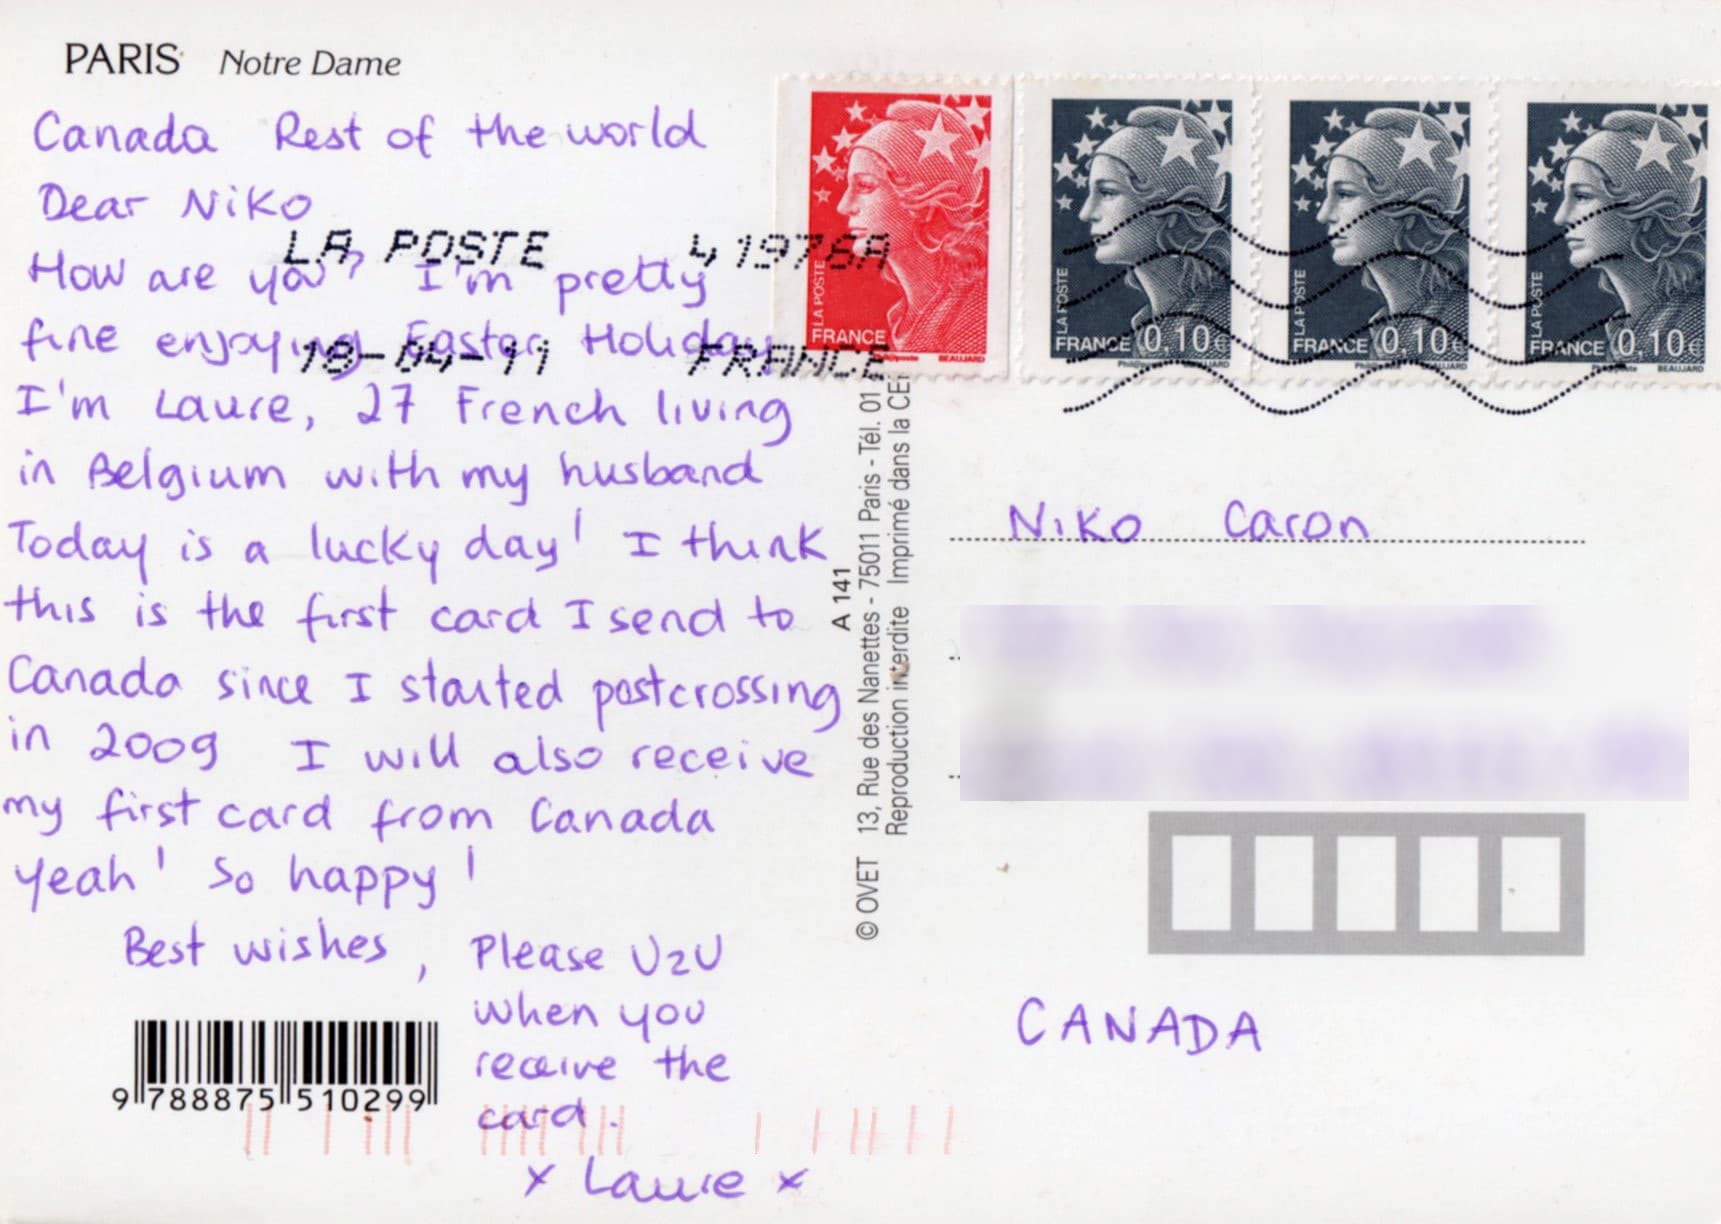 PARIS Notre Dame
Canada Rest of the world
Dear Niko
How are you? I'm pretty
fine enjoying Easter Holiday
I'm Laure, 27 French living
in Belgium with my husband
Today is a lucky day! I think
this is the first card I send to
Canada since I started postcrossing
in 2009 I will also receive
my first card from Canada
Yeah! So happy!
Best wishes,
Please U2U
when you
receive the
card.
x Laure x
9 788875 510299
LA POSTE 41976A
18-04-11 FRANCE
LA POSTE
FRANCE
BEAUJARD
LA POSTE
FRANCE 0,10€
LA POSTE
FRANCE 0,10€
LA POSTE
FRANCE 0,10€
BEAUJARD
A 141
© OVET 13, Rue des Nanettes - 75011 Paris - Tél. 01
Reproduction interdite Imprimé dans la
Niko Caron
CANADA